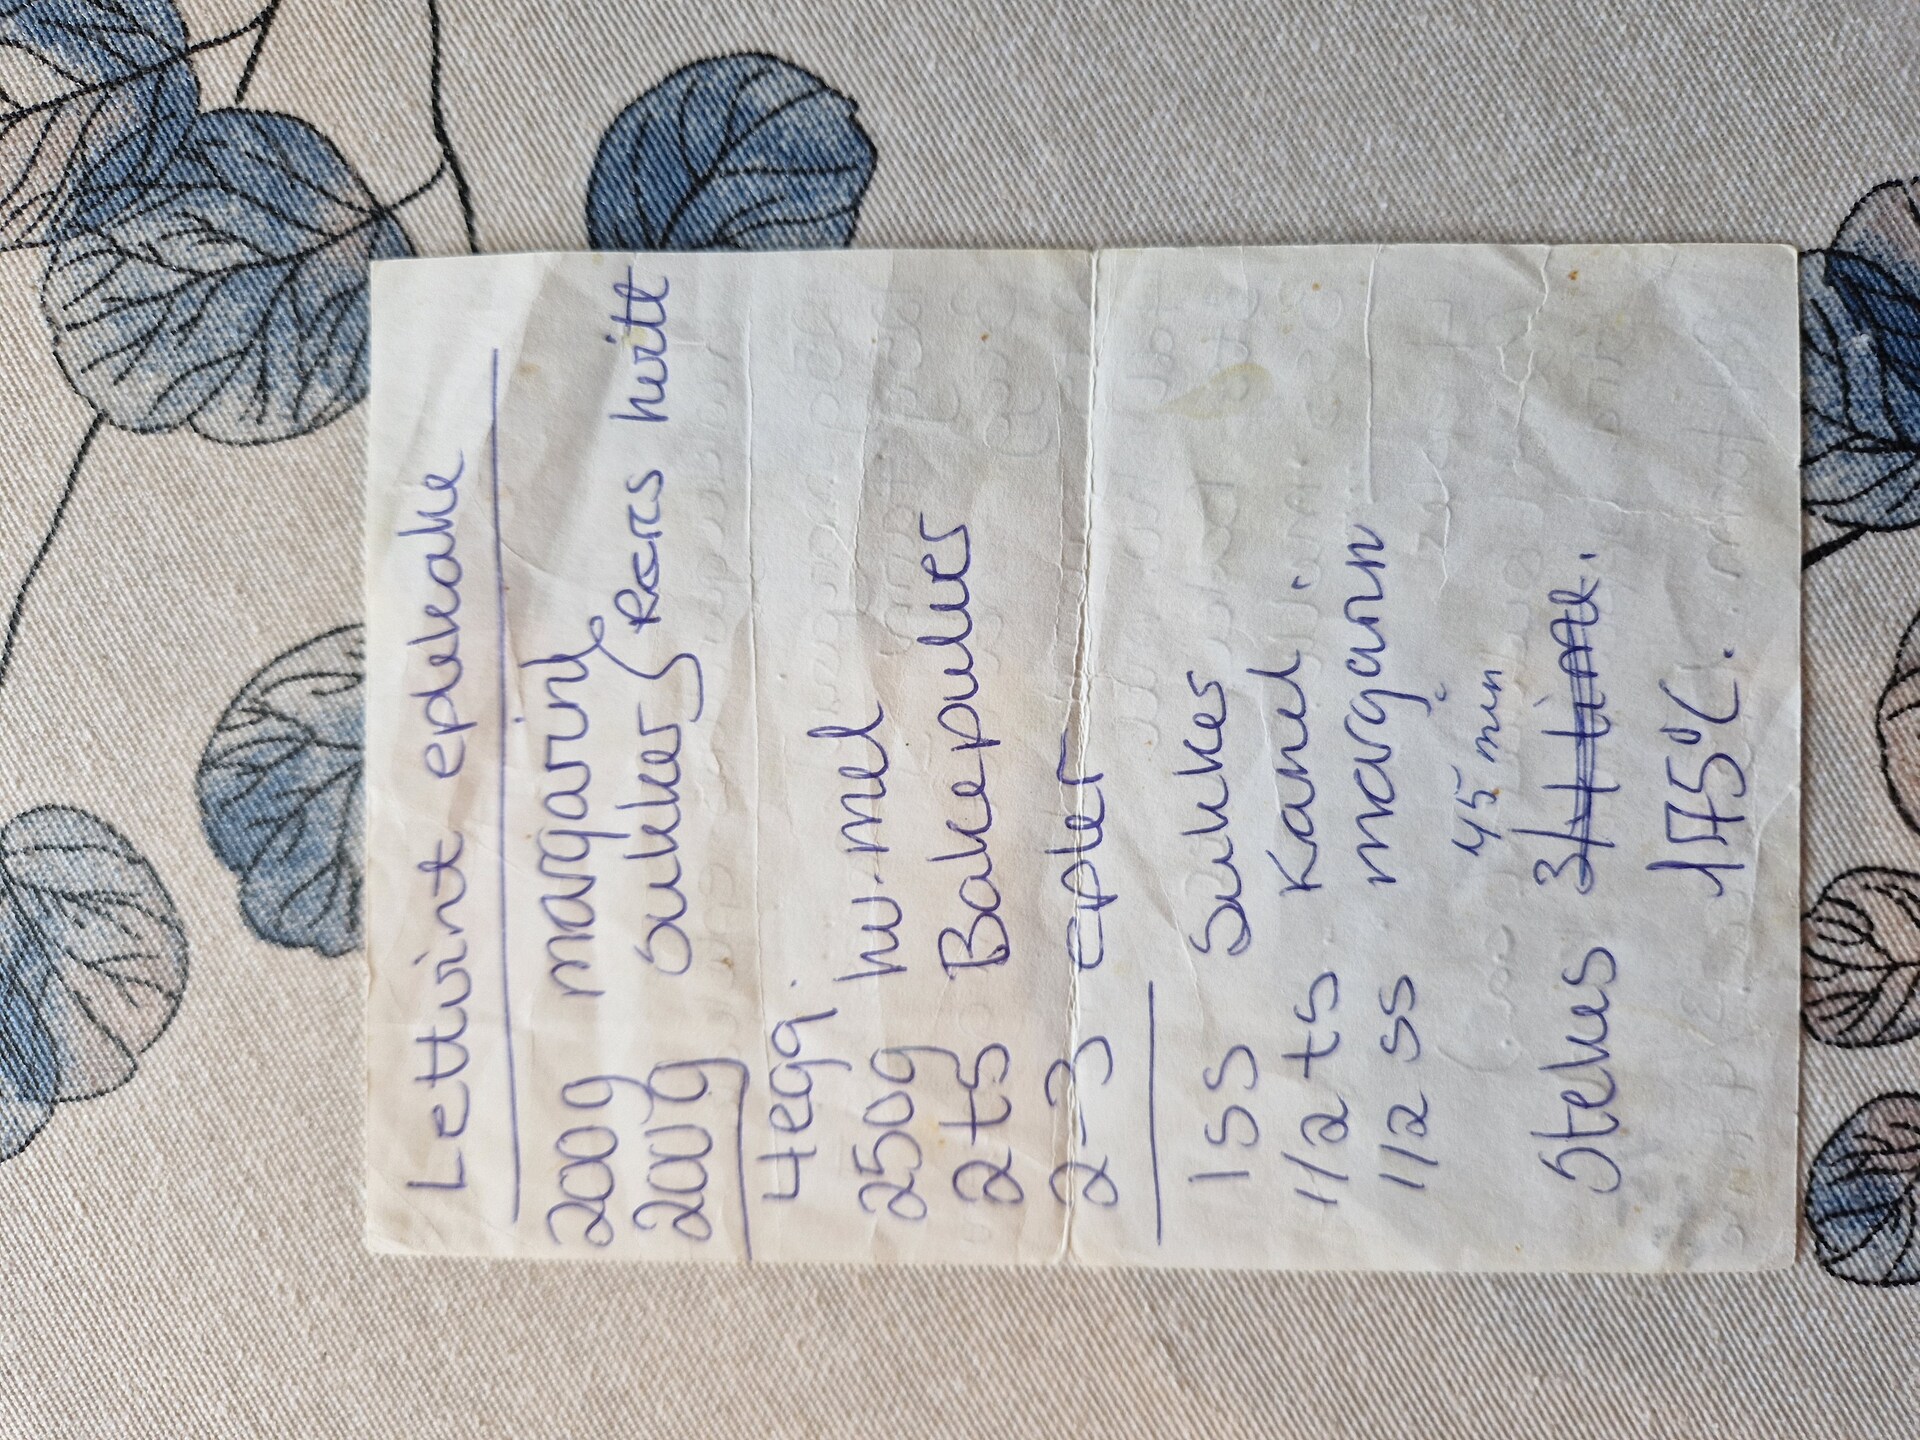 Lettvint eplekake
200g margarin
200g sukker } Røres hvitt
4 egg.
250g hv.mel
2 ts Bakepulver
2-3 epler
1 ss Sukker
1/2 ts Kanel.
1/2 ss margarin
45 min
Stekes 3/4 time.
175°C.